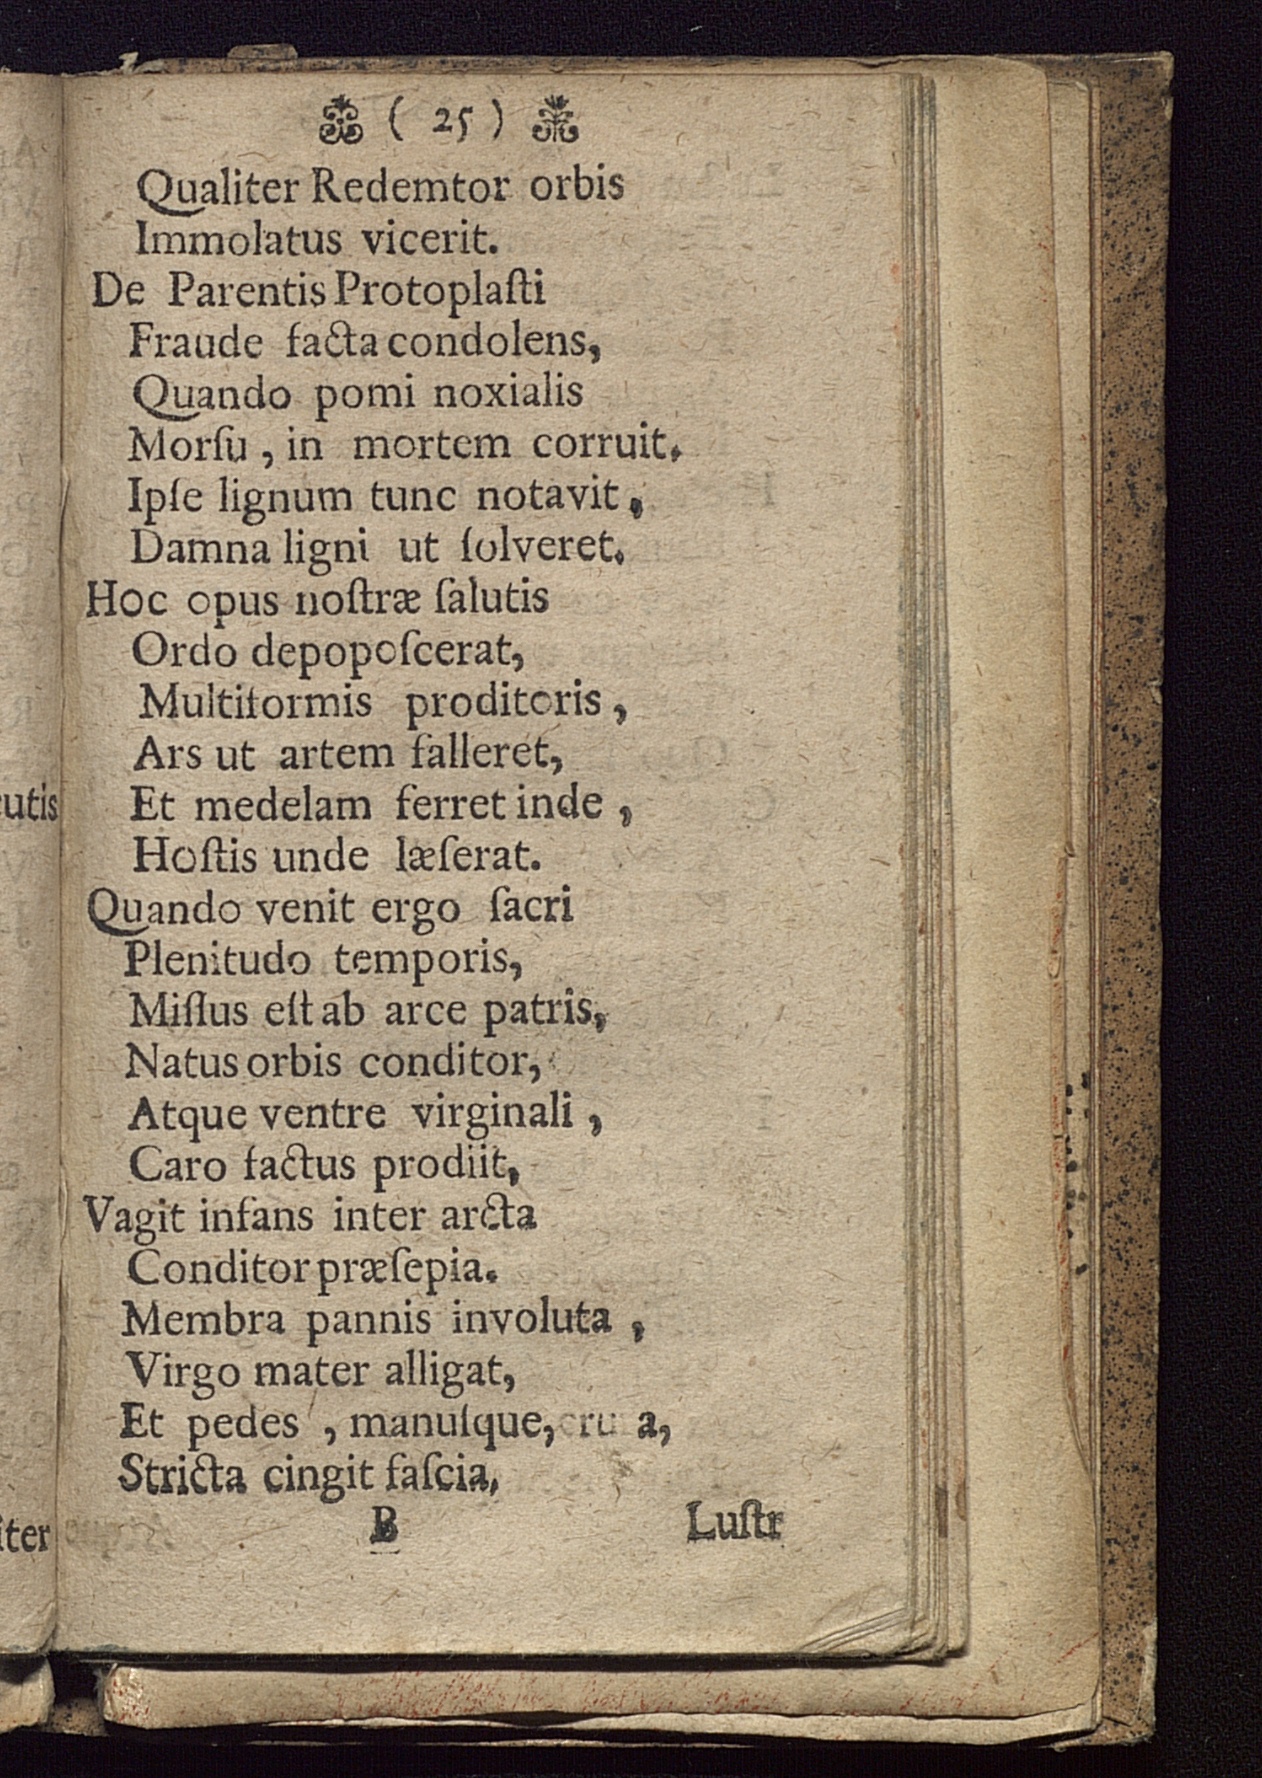 ( 25 )
Qualiter Redemtor orbis
Immolatus vicerit.
De Parentis Protoplaſti
Fraude facta condolens,
Quando pomi noxialis
Morſu, in mortem corruit.
Ipſe lignum tunc notavit,
Damna ligni ut ſolveret.
Hoc opus noſtræ ſalutis
Ordo depopoſcerat,
Multiformis proditoris,
Ars ut artem falleret,
Et medelam ferret inde,
Hoſtis unde læſerat.
Quando venit ergo ſacri
Plenitudo temporis,
Miſſus eſt ab arce patris,
Natus orbis conditor,
Atque ventre virginali,
Caro factus prodiit,
Vagit infans inter arcta
Conditor præſepia.
Membra pannis involuta,
Virgo mater alligat,
Et pedes, manuſque,
Stricta cingit faſcia,
B Luſtr